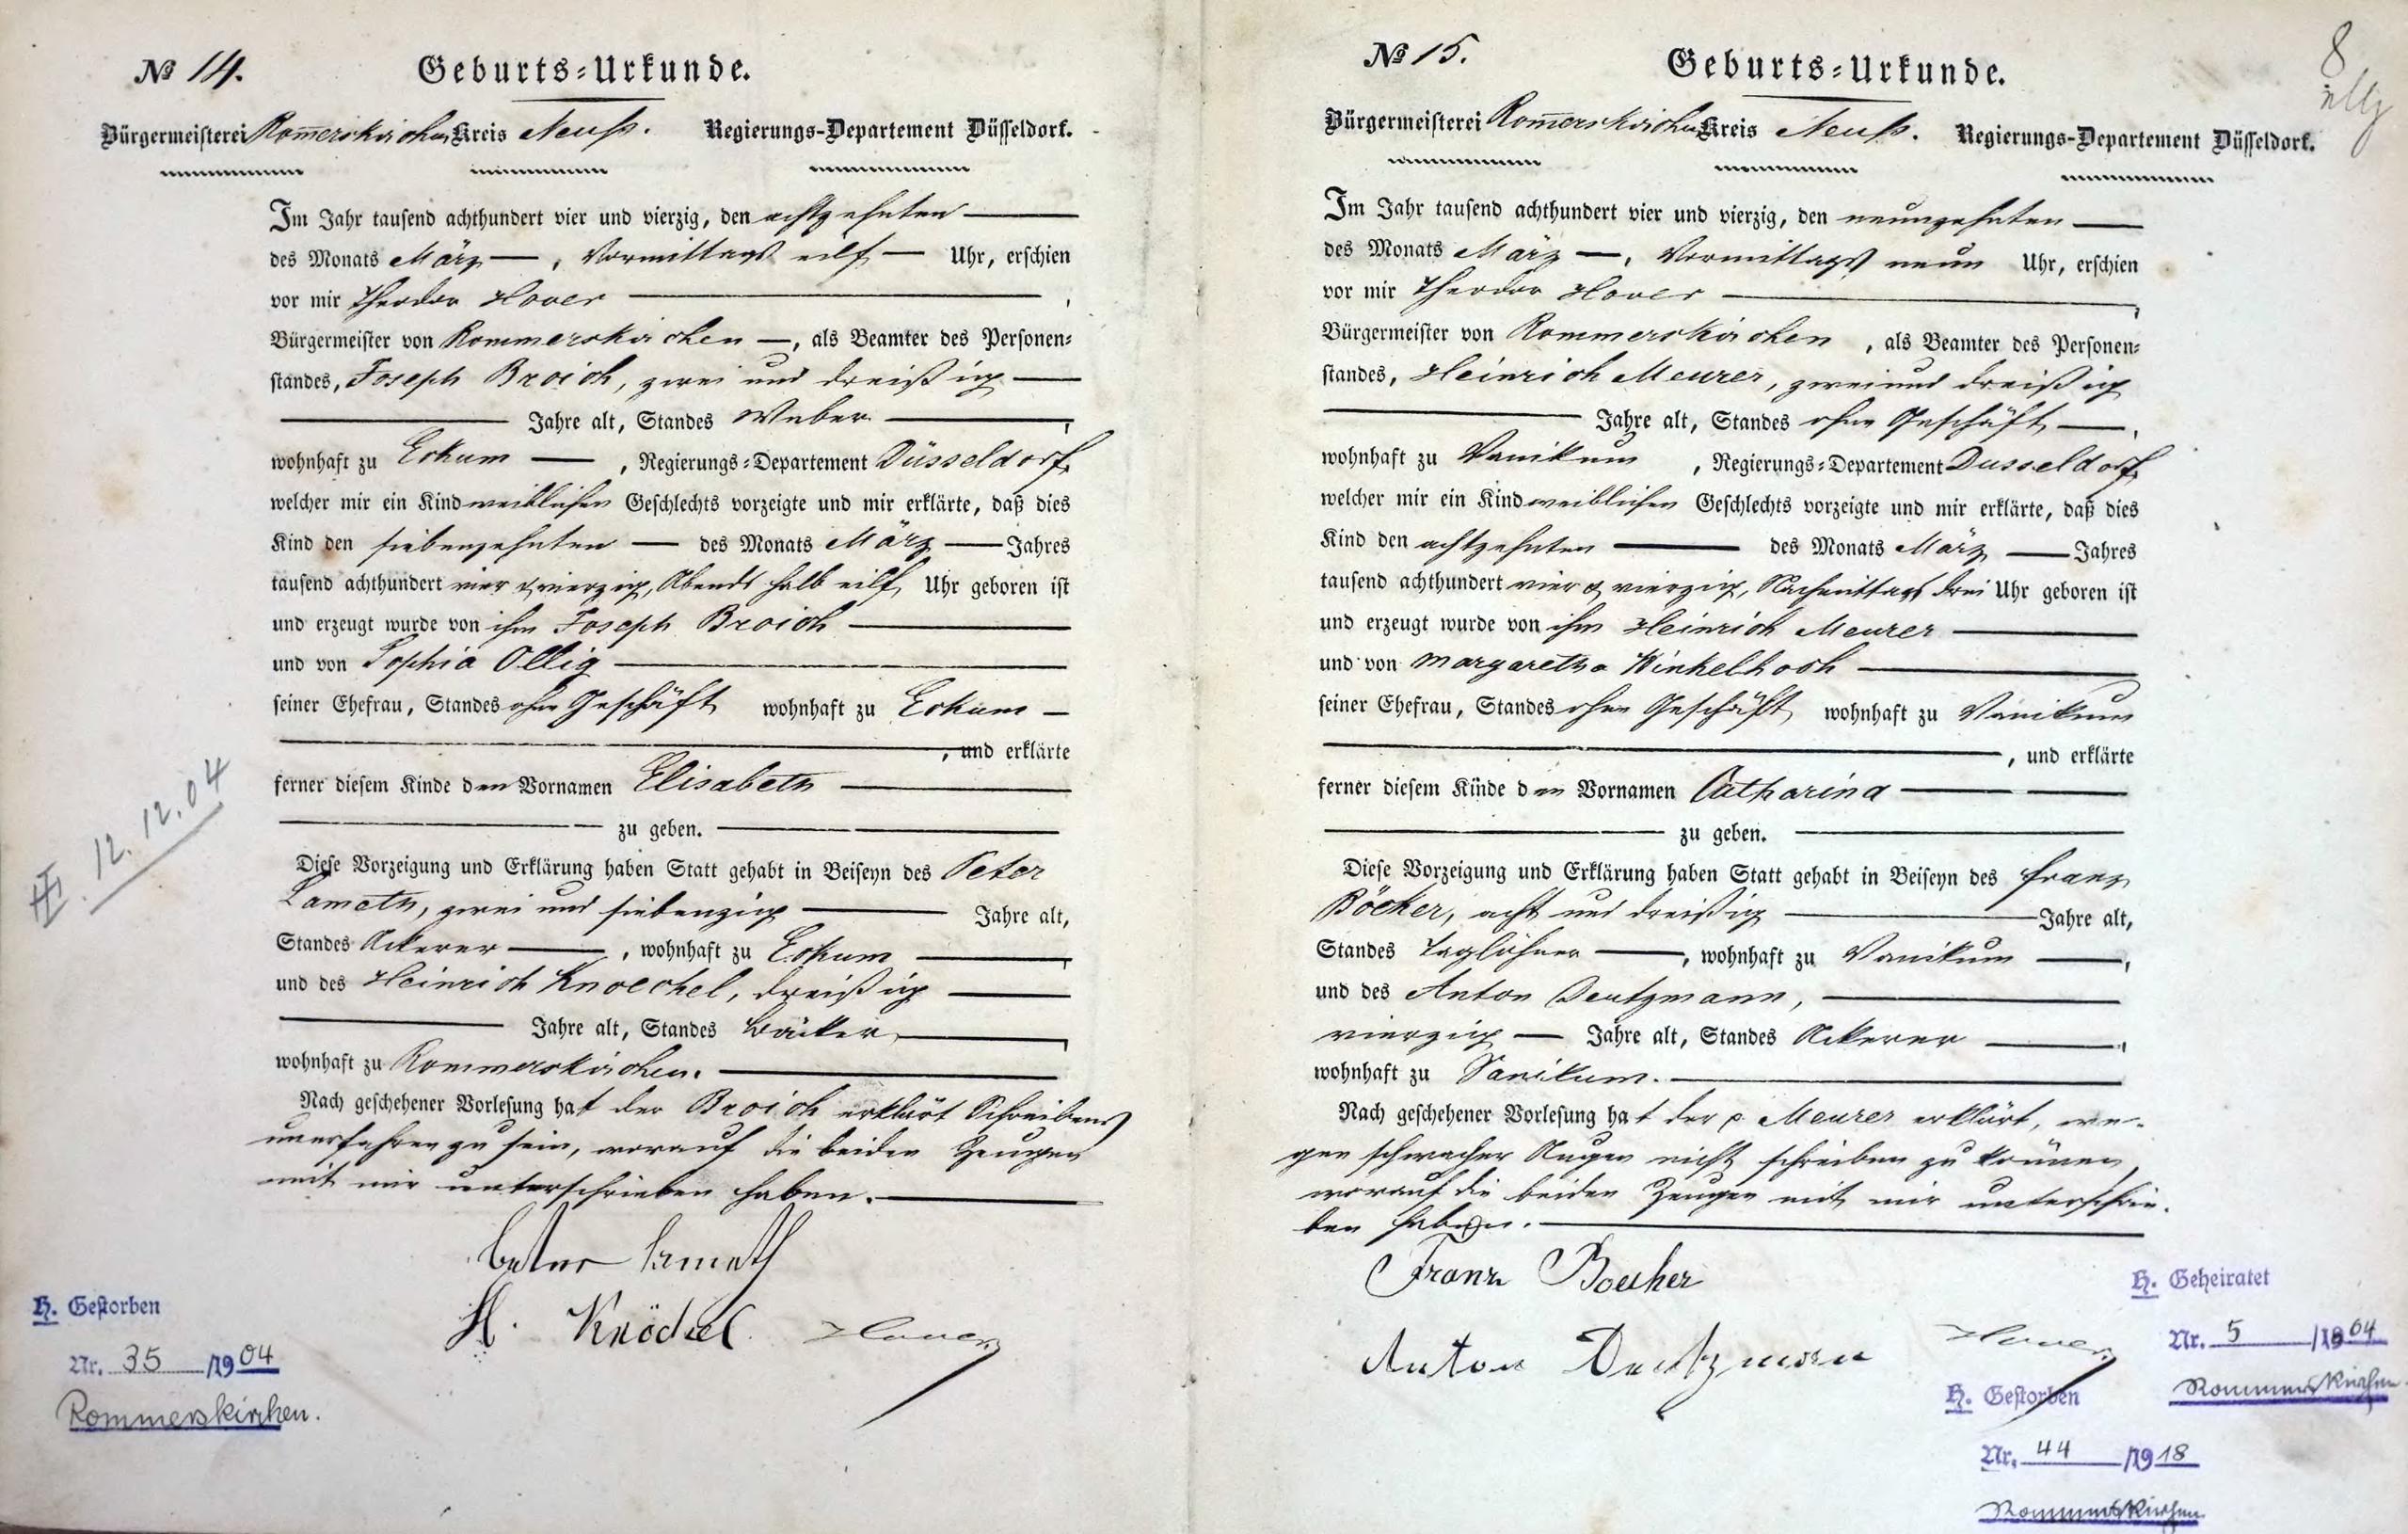 № 14.
Geburts-Urkunde.
Bürgermeisterei Rom̅erskirchen Kreis Neuss. Regierungs-Departement Düsseldorf.
Im Jahr tausend achthundert vier und vierzig, den achtzehnten
des Monats März, Vormittags eilf Uhr, erschien
vor mir Theodor Hover,
Bürgermeister von Rommerskirchen, als Beamter des Personen-
standes, Joseph Broich, zwei und dreißig
Jahre alt, Standes Weber,
wohnhaft zu Eckum, Regierungs-Departement Düsseldorf,
welcher mir ein Kind weiblichen Geschlechts vorzeigte und mir erklärte, daß dies
Kind den siebenzehnten des Monats März Jahres
tausend achthundert vier & vierzig, Abends halb eilf Uhr geboren ist
und erzeugt wurde von ihm Joseph Broich
und von Sophia Ollig
seiner Ehefrau, Standes ohne Geschäft wohnhaft zu Eckum
, und erklärte
ferner diesem Kinde den Vornamen Elisabeth
zu geben.
Diese Vorzeigung und Erklärung haben Statt gehabt in Beiseyn des Peter
Lameth, zwei und siebenzig Jahre alt,
Standes Ackerer, wohnhaft zu Eckum,
und des Heinrich Knoechel, dreißig
Jahre alt, Standes Bäcker,
wohnhaft zu Rommerskirchen.
Nach geschehener Vorlesung hat der Broich erklärt Schreibens
unerfahren zu sein, worauf die beiden Zeugen
mit mir unterschrieben haben.
Peter Lameth
H. Knöchel Hover
III. 12.12.04
H. Gestorben
Nr. 35 /1904
Rommerskirchen.
8
№ 15.
Geburts-Urkunde.
Bürgermeisterei Rom̅erskirchen Kreis Neuss. Regierungs-Departement Düsseldorf.
Im Jahr tausend achthundert vier und vierzig, den neunzehnten
des Monats März, Vormittags neun Uhr, erschien
vor mir Theodor Hover,
Bürgermeister von Rommerskirchen, als Beamter des Personen-
standes, Heinrich Meurer, zwei und dreißig
Jahre alt, Standes ohne Geschäft,
wohnhaft zu Vanikum, Regierungs-Departement Dusseldorf,
welcher mir ein Kind weiblichen Geschlechts vorzeigte und mir erklärte, daß dies
Kind den achtzehnten des Monats März Jahres
tausend achthundert vier & vierzig, Nachmittags drei Uhr geboren ist
und erzeugt wurde von ihm Heinrich Meurer
und von Margaretha Winkelhoch
seiner Ehefrau, Standes ohne Geschäft wohnhaft zu Vanikum
, und erklärte
ferner diesem Kinde den Vornamen Catharina
zu geben.
Diese Vorzeigung und Erklärung haben Statt gehabt in Beiseyn des Franz
Böcker, acht und dreißig Jahre alt,
Standes Taglöhner, wohnhaft zu Vanikum,
und des Anton Deutzmann,
vierzig Jahre alt, Standes Ackerer,
wohnhaft zu Vanikum.
Nach geschehener Vorlesung hat der p. Meurer erklärt, we-
gen schwacher Augen nicht schreiben zu können,
worauf die beiden Zeugen mit mir unterschrie-
ben haben.
Franz Boecker
Anton Deutzmann Hover
H. Geheiratet
Nr. 5 /1864
Rommerskirchen
H. Gestorben
Nr. 44 /1918
Rommerskirchen